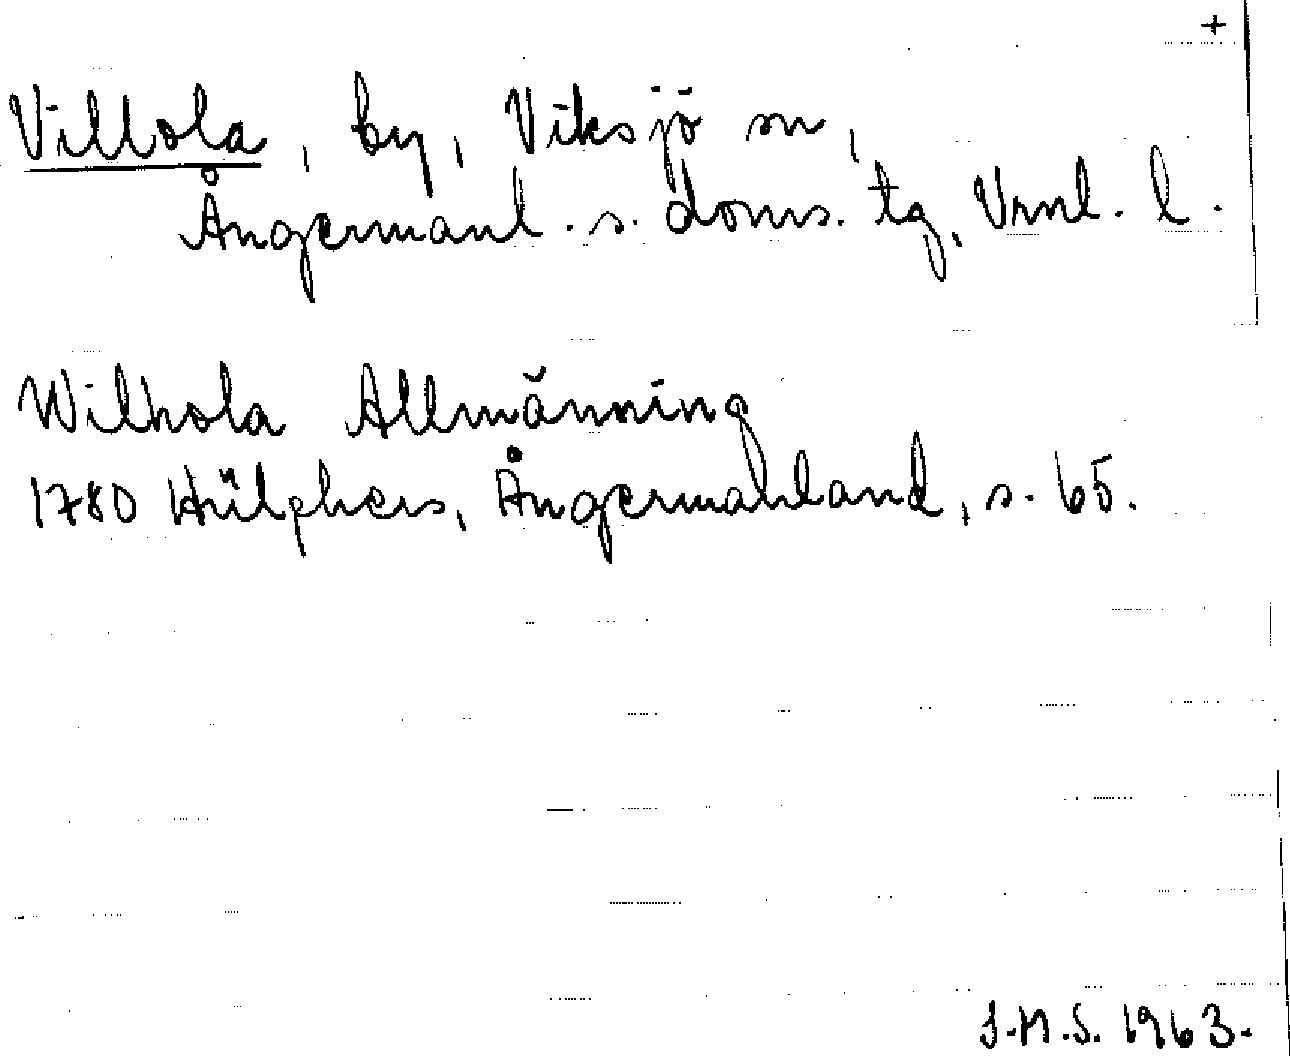 +
Villola, by, Viksjö sn,
Ångermanl. s. doms. tg, Vrnl. l.
Wilhola Allmänning
1780 Hülphers, Ångermanland, s. 65.
J.M.S. 1963.